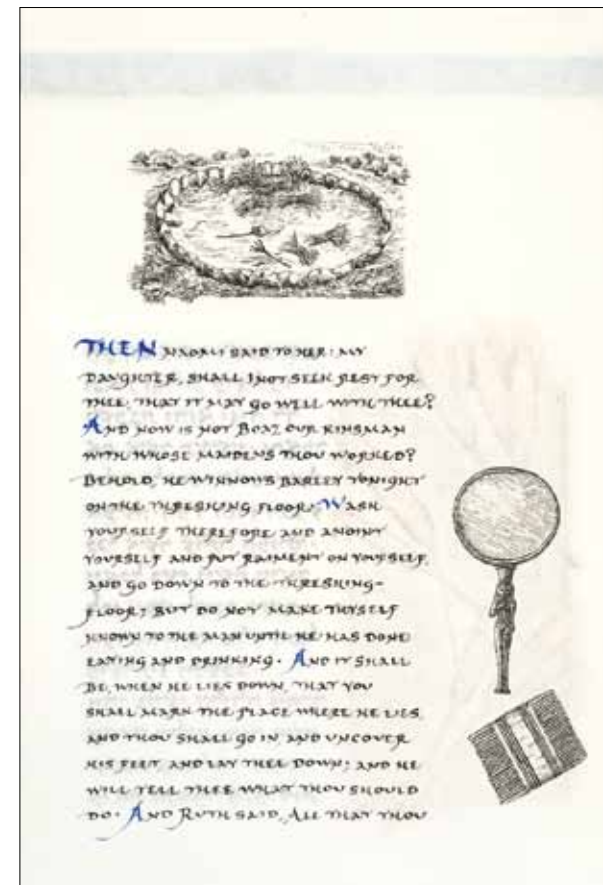 THEN NAOMI SAID TO HER: MY
DAUGHTER, SHALL I NOT SEEK REST FOR
THEE, THAT IT MAY GO WELL WITH THEE?
AND NOW IS NOT BOAZ OUR KINSMAN
WITH WHOSE MAIDENS THOU WORKED?
BEHOLD, HE WINNOWS BARLEY TONIGHT
ON THE THRESHING FLOOR. WASH
YOURSELF THEREFORE AND ANOINT
YOURSELF AND PUT RAIMENT ON YOURSELF,
AND GO DOWN TO THE THRESHING-
FLOOR; BUT DO NOT MAKE THYSELF
KNOWN TO THE MAN UNTIL HE HAS DONE
EATING AND DRINKING. AND IT SHALL
BE, WHEN HE LIES DOWN, THAT YOU
SHALL MARK THE PLACE WHERE HE LIES,
AND THOU SHALL GO IN AND UNCOVER
HIS FEET, AND LAY THEE DOWN; AND HE
WILL TELL THEE WHAT THOU SHOULD
DO. AND RUTH SAID, ALL THAT THOU